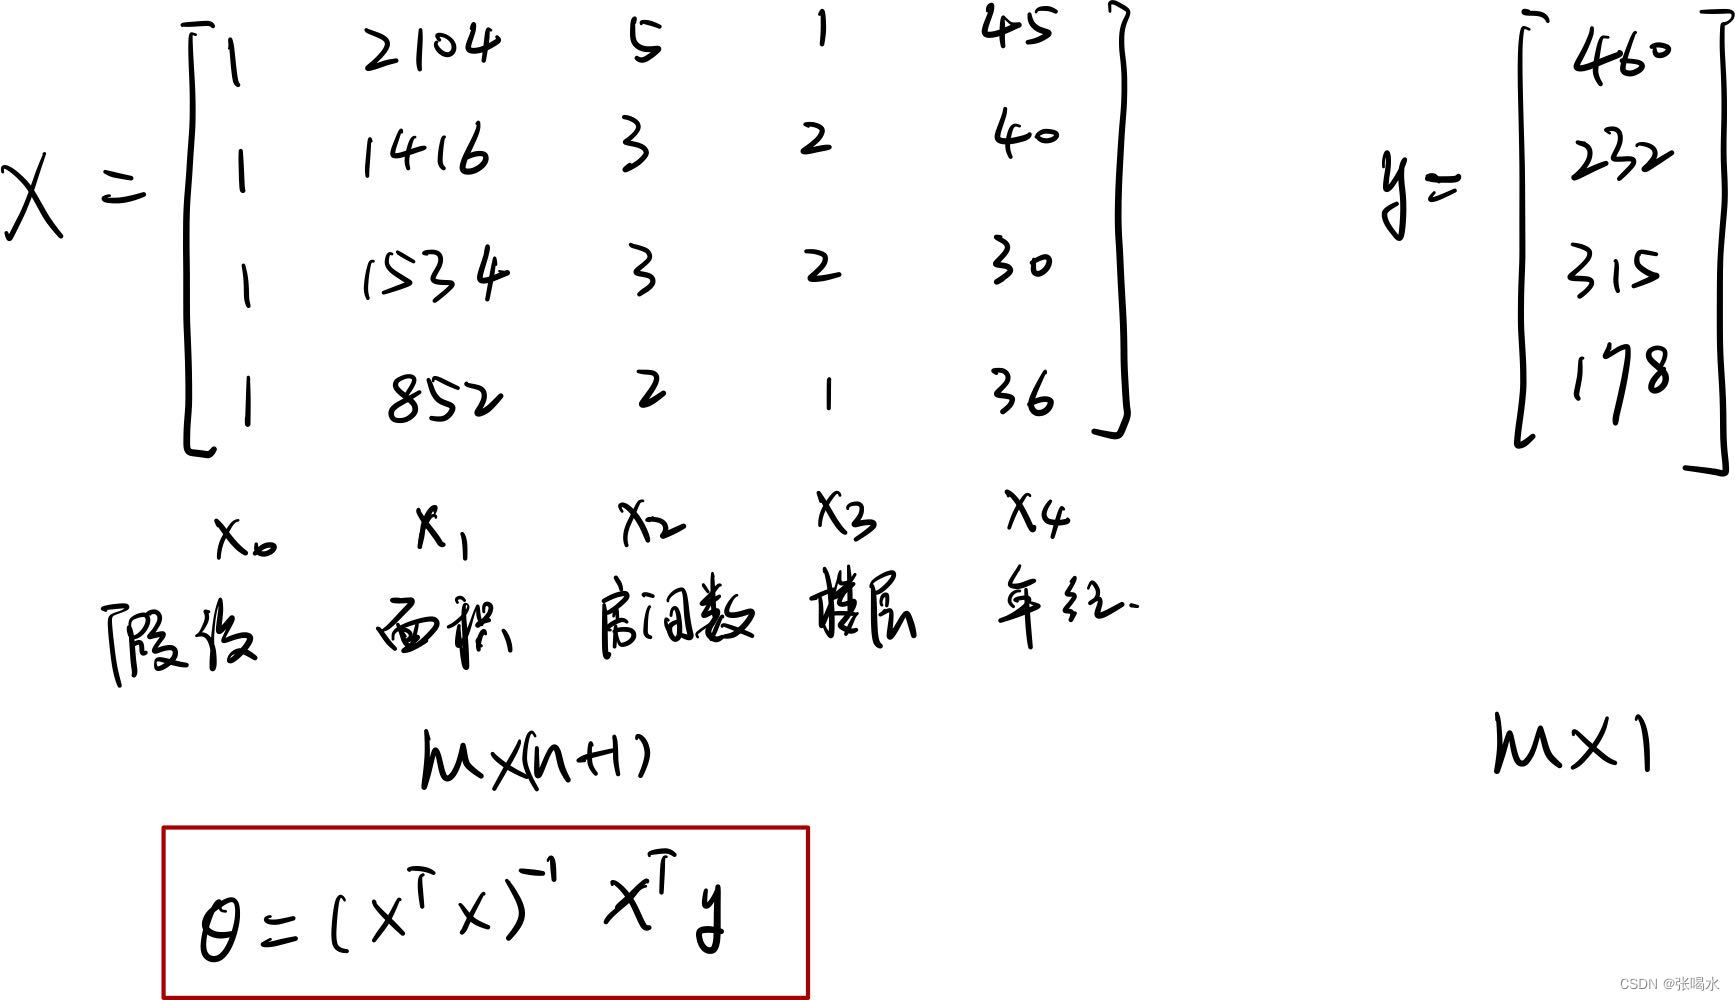 X = [ 1 2104 5 1 45
1 1416 3 2 40
1 1534 3 2 30
1 852 2 1 36 ]
y = [ 460
232
315
178 ]
x₀ x₁ x₂ x₃ x₄
假设 面积 房间数 楼层 年纪
m×(n+1)
m×1
θ = (X^T X)^-1 X^T y
CSDN @张喝水